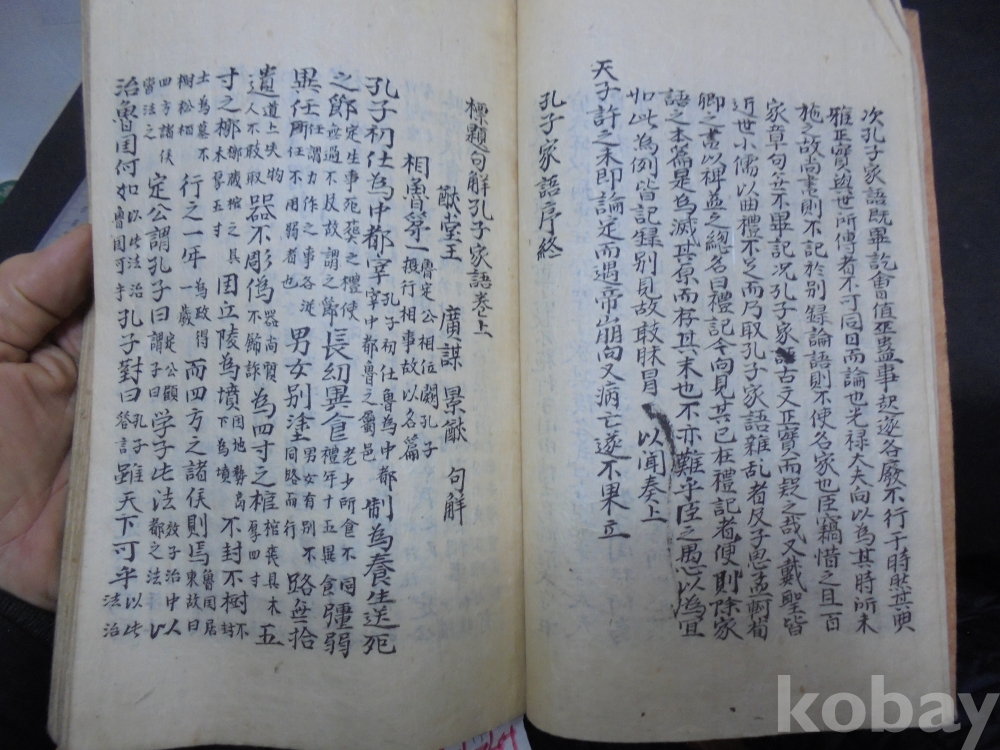 次孔子家語既畢訖會值巫蠱事起遂各廢不行于時然其典
雅正實與世所傳者不可同日而論也光禄大夫向以為其時所未
施之故尚書則不記於别録論語則不使名家也臣竊惜之且百
家章句無不畢記况孔子家古文正實而疑之哉又戴聖皆
近世小儒以曲禮不足而乃取孔子家語雜乱者及子思孟軻荀
卿之書以裨益之總名曰禮記今向見其已在禮記者便則除家
語之本篇是為滅其原而存其末也不亦難乎臣之愚以為宜
如此為例皆記録别見故敢昧冒 以聞奏上
天子許之未即論定而遇帝崩向又病亡遂不果立
孔子家語序終
標題句解孔子家語卷上
猷堂王 廣謀 景猷 句解
相魯第一 魯定公相位闕孔子攝行相事故以名篇
孔子初仕為中都宰 孔子初仕魯為中都宰中都魯之屬邑 制為養生送死
之節 定生事死葬之禮使無過不及故謂之節 長幼異食 老少所食不同禮年十五異食 彊弱
異任 任謂力作之事各從所任不用弱者也 男女别塗 男女有别不同路而行 路無拾
遺 道上失物人不敢取 器不彫偽 器尚質不餙詐 為四寸之棺 棺喪具木厚四寸 五
寸之槨 槨藏棺之具木厚五寸 因丘陵為墳 因地勢高下為墳 不封不樹 不封
士為墓不樹松栢 行之一年 為政得一歲 而四方之諸侯則焉 魯国居東故曰
四方諸侯皆法之 定公謂孔子曰 定公顧謂子曰 学子此法 效子治中都之法 以
治魯国何如 以此法治魯国可乎 孔子對曰 孔子答言 雖天下可乎 以此法治
kobay